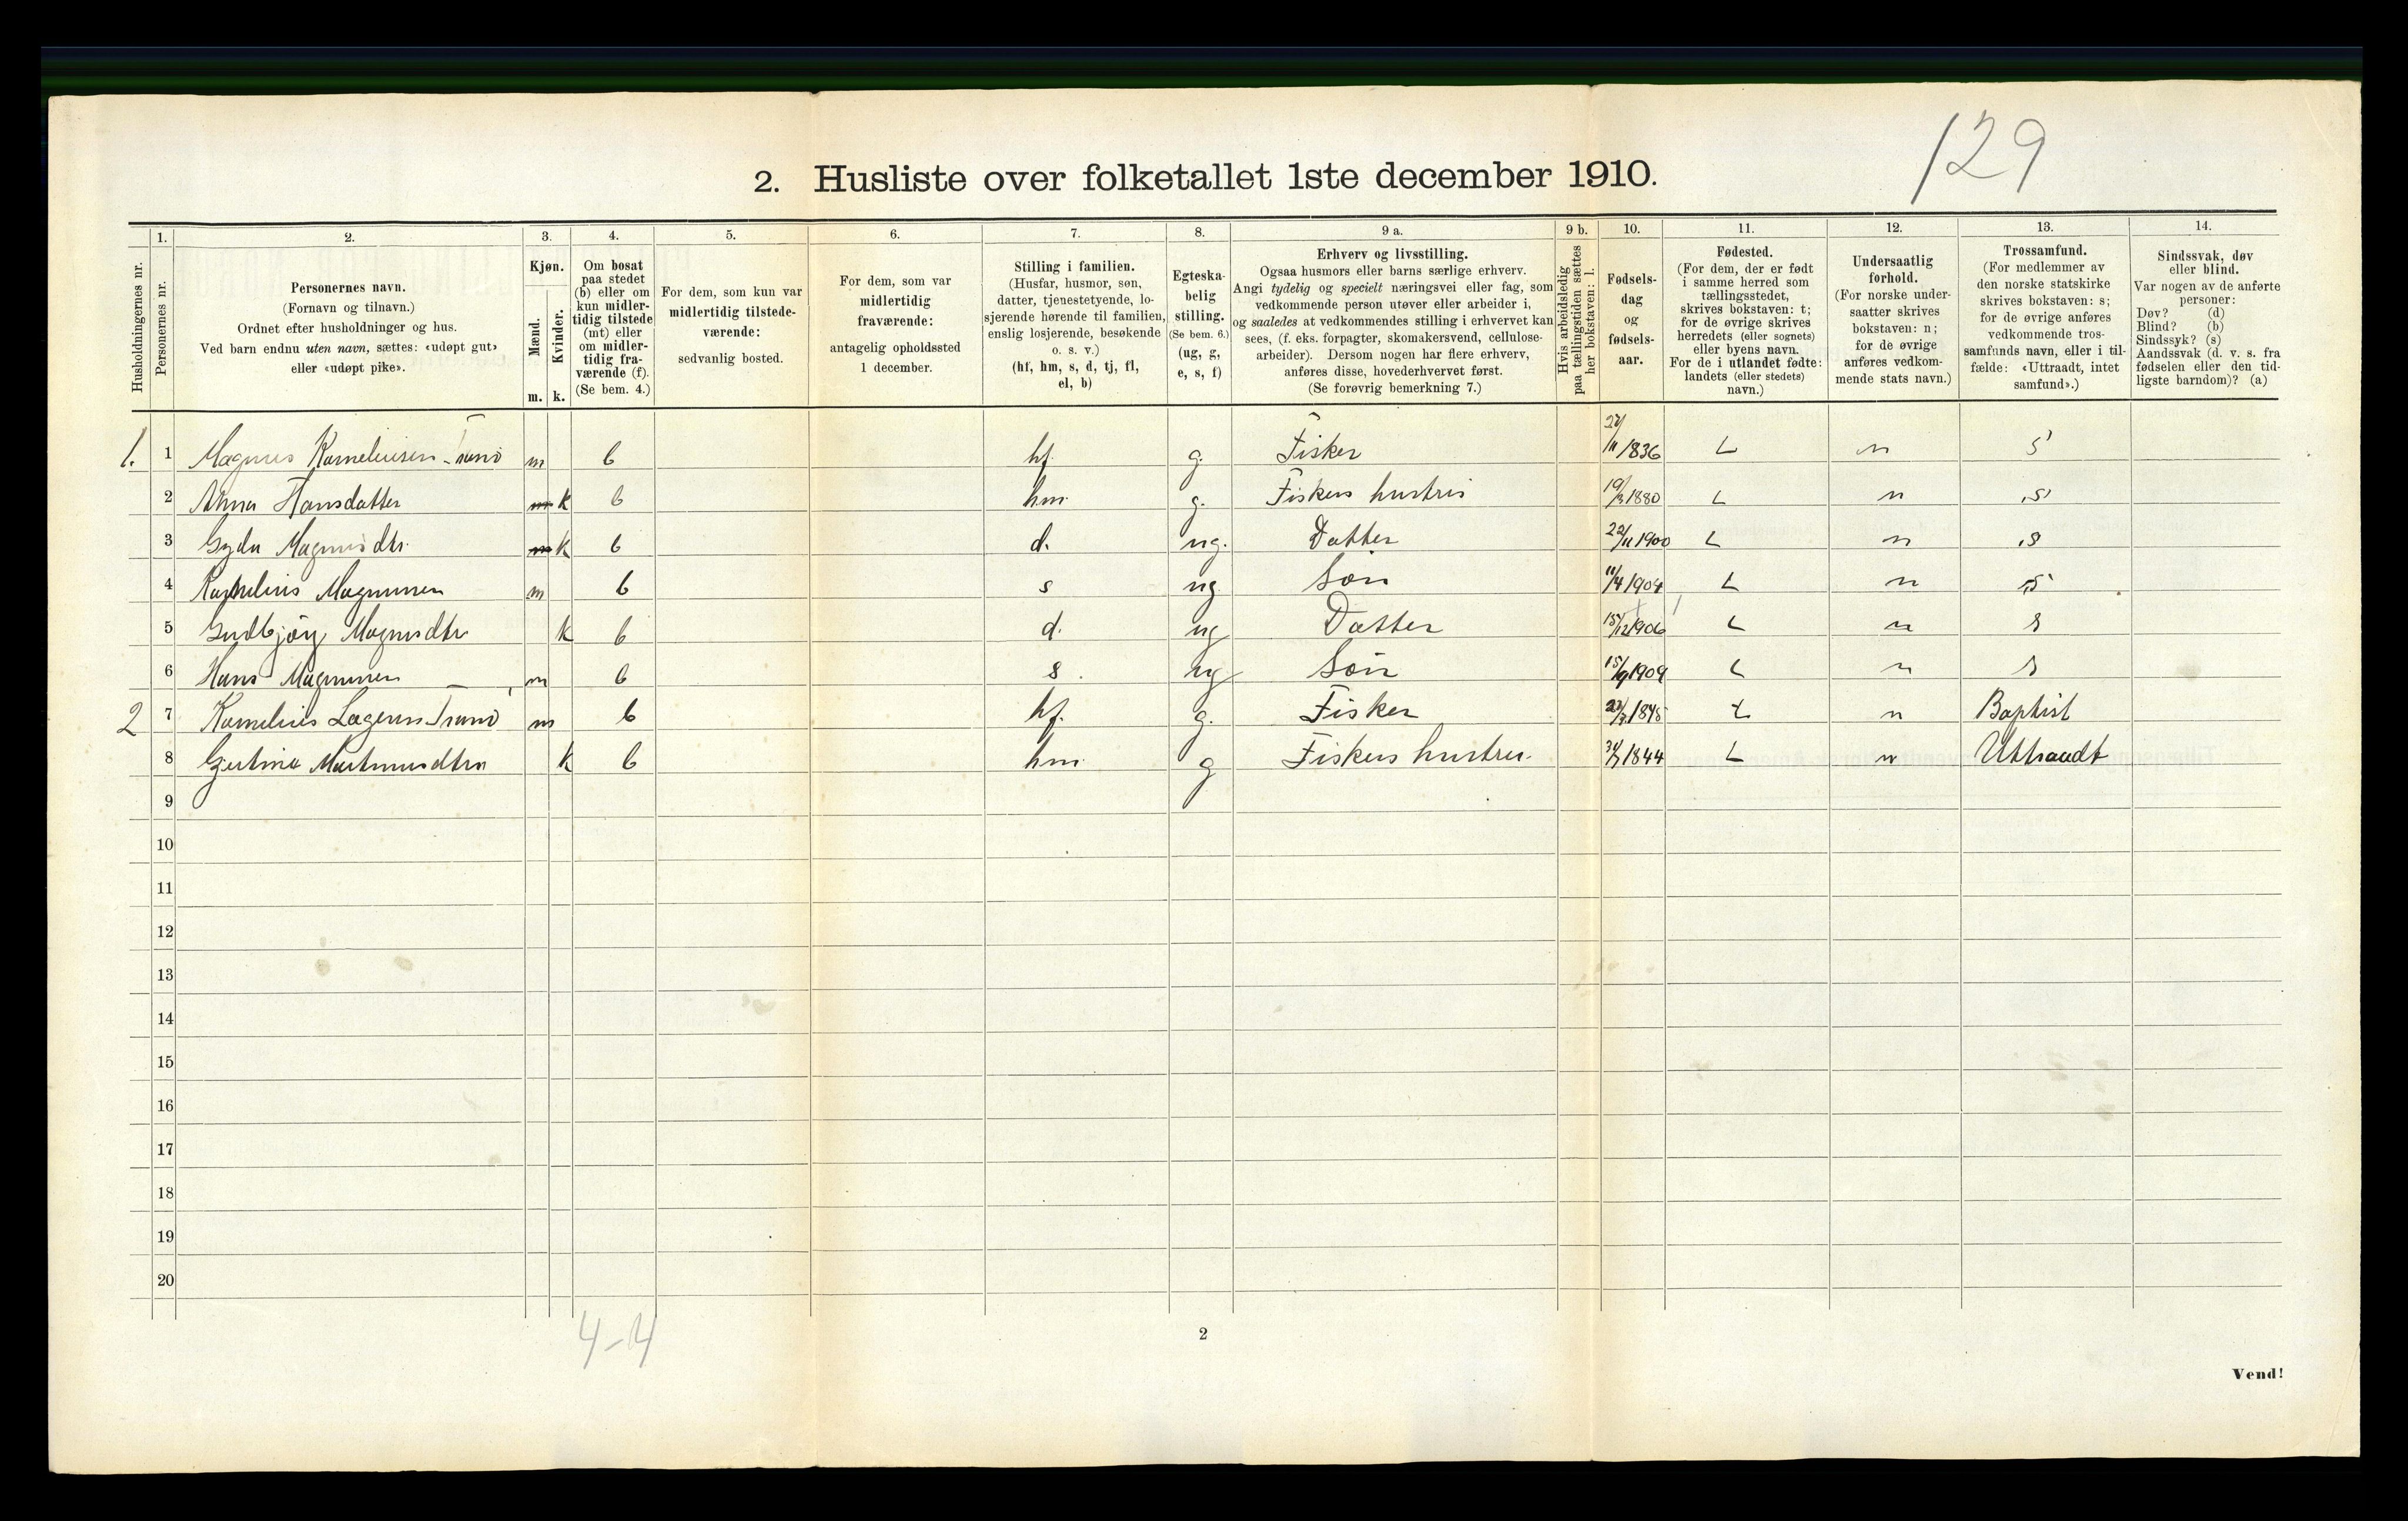 129
2. Husliste over folketallet 1ste december 1910.
Husholdningernes nr.
1. Personernes nr.
2. Personernes navn. (Fornavn og tilnavn.) Ordnet efter husholdninger og hus. Ved barn endnu uten navn, sættes: «udøpt gut» eller «udøpt pike».
3. Kjøn. Mænd. m. Kvinder. k.
4. Om bosat paa stedet (b) eller om kun midlertidig tilstede (mt) eller om midlertidig fraværende (f). (Se bem. 4.)
5. For dem, som kun var midlertidig tilstedeværende: sedvanlig bosted.
6. For dem, som var midlertidig fraværende: antagelig opholdssted 1 december.
7. Stilling i familien. (Husfar, husmor, søn, datter, tjenestetyende, losjerende hørende til familien, enslig losjerende, besøkende o. s. v.) (hf, hm, s, d, tj, fl, el, b)
8. Egteskabelig stilling. (Se bem. 6.) (ug, g, e, s, f)
9 a. Erhverv og livsstilling. Ogsaa husmors eller barns særlige erhverv. Angi tydelig og specielt næringsvei eller fag, som vedkommende person utøver eller arbeider i, og saaledes at vedkommendes stilling i erhvervet kan sees, (f. eks. forpagter, skomakersvend, cellulosearbeider). Dersom nogen har flere erhverv, anføres disse, hovederhvervet først. (Se forøvrig bemerkning 7.)
9 b. Hvis arbeidsledig paa tællingstiden sættes her bokstaven: l.
10. Fødselsdag og fødselsaar.
11. Fødested. (For dem, der er født i samme herred som tællingsstedet, skrives bokstaven: t; for de øvrige skrives herredets (eller sognets) eller byens navn. For de i utlandet fødte: landets (eller stedets) navn.)
12. Undersaatlig forhold. (For norske undersaatter skrives bokstaven: n; for de øvrige anføres vedkommende stats navn.)
13. Trossamfund. (For medlemmer av den norske statskirke skrives bokstaven: s; for de øvrige anføres vedkommende trossamfunds navn, eller i tilfælde: «Uttraadt, intet samfund».)
14. Sindssvak, døv eller blind. Var nogen av de anførte personer: Døv? (d) Blind? (b) Sindssyk? (s) Aandssvak (d. v. s. fra fødselen eller den tidligste barndom)? (a)
1. 1 Magnus Korneliusen m b hf. g. Fisker 1836 t n s
2 Anna Hansdatter m k b hm g. Fiskers hustru 19/3 1880 t n s
3 Gyda Magnusdtr. m k b d. ug. Datter 22/11 1900 t n s
4 Kornelius Magnussen m b s ug. Søn 11/4 1904 t n s
5 Gudbjørg Magnusdtr k b d. ug Datter 15/12 1906 t n s
6 Hans Magnussen m b s. ug Søn 15/9 1909 t n s
2 7 Kornelius m b hf. g. Fisker 1845 t n Baptist
8 k b hm g Fiskers hustru. 1844 t n Uttraadt
9
10
11
12
13
14
15
16
17
18
19
20
4-4
2
Vend!